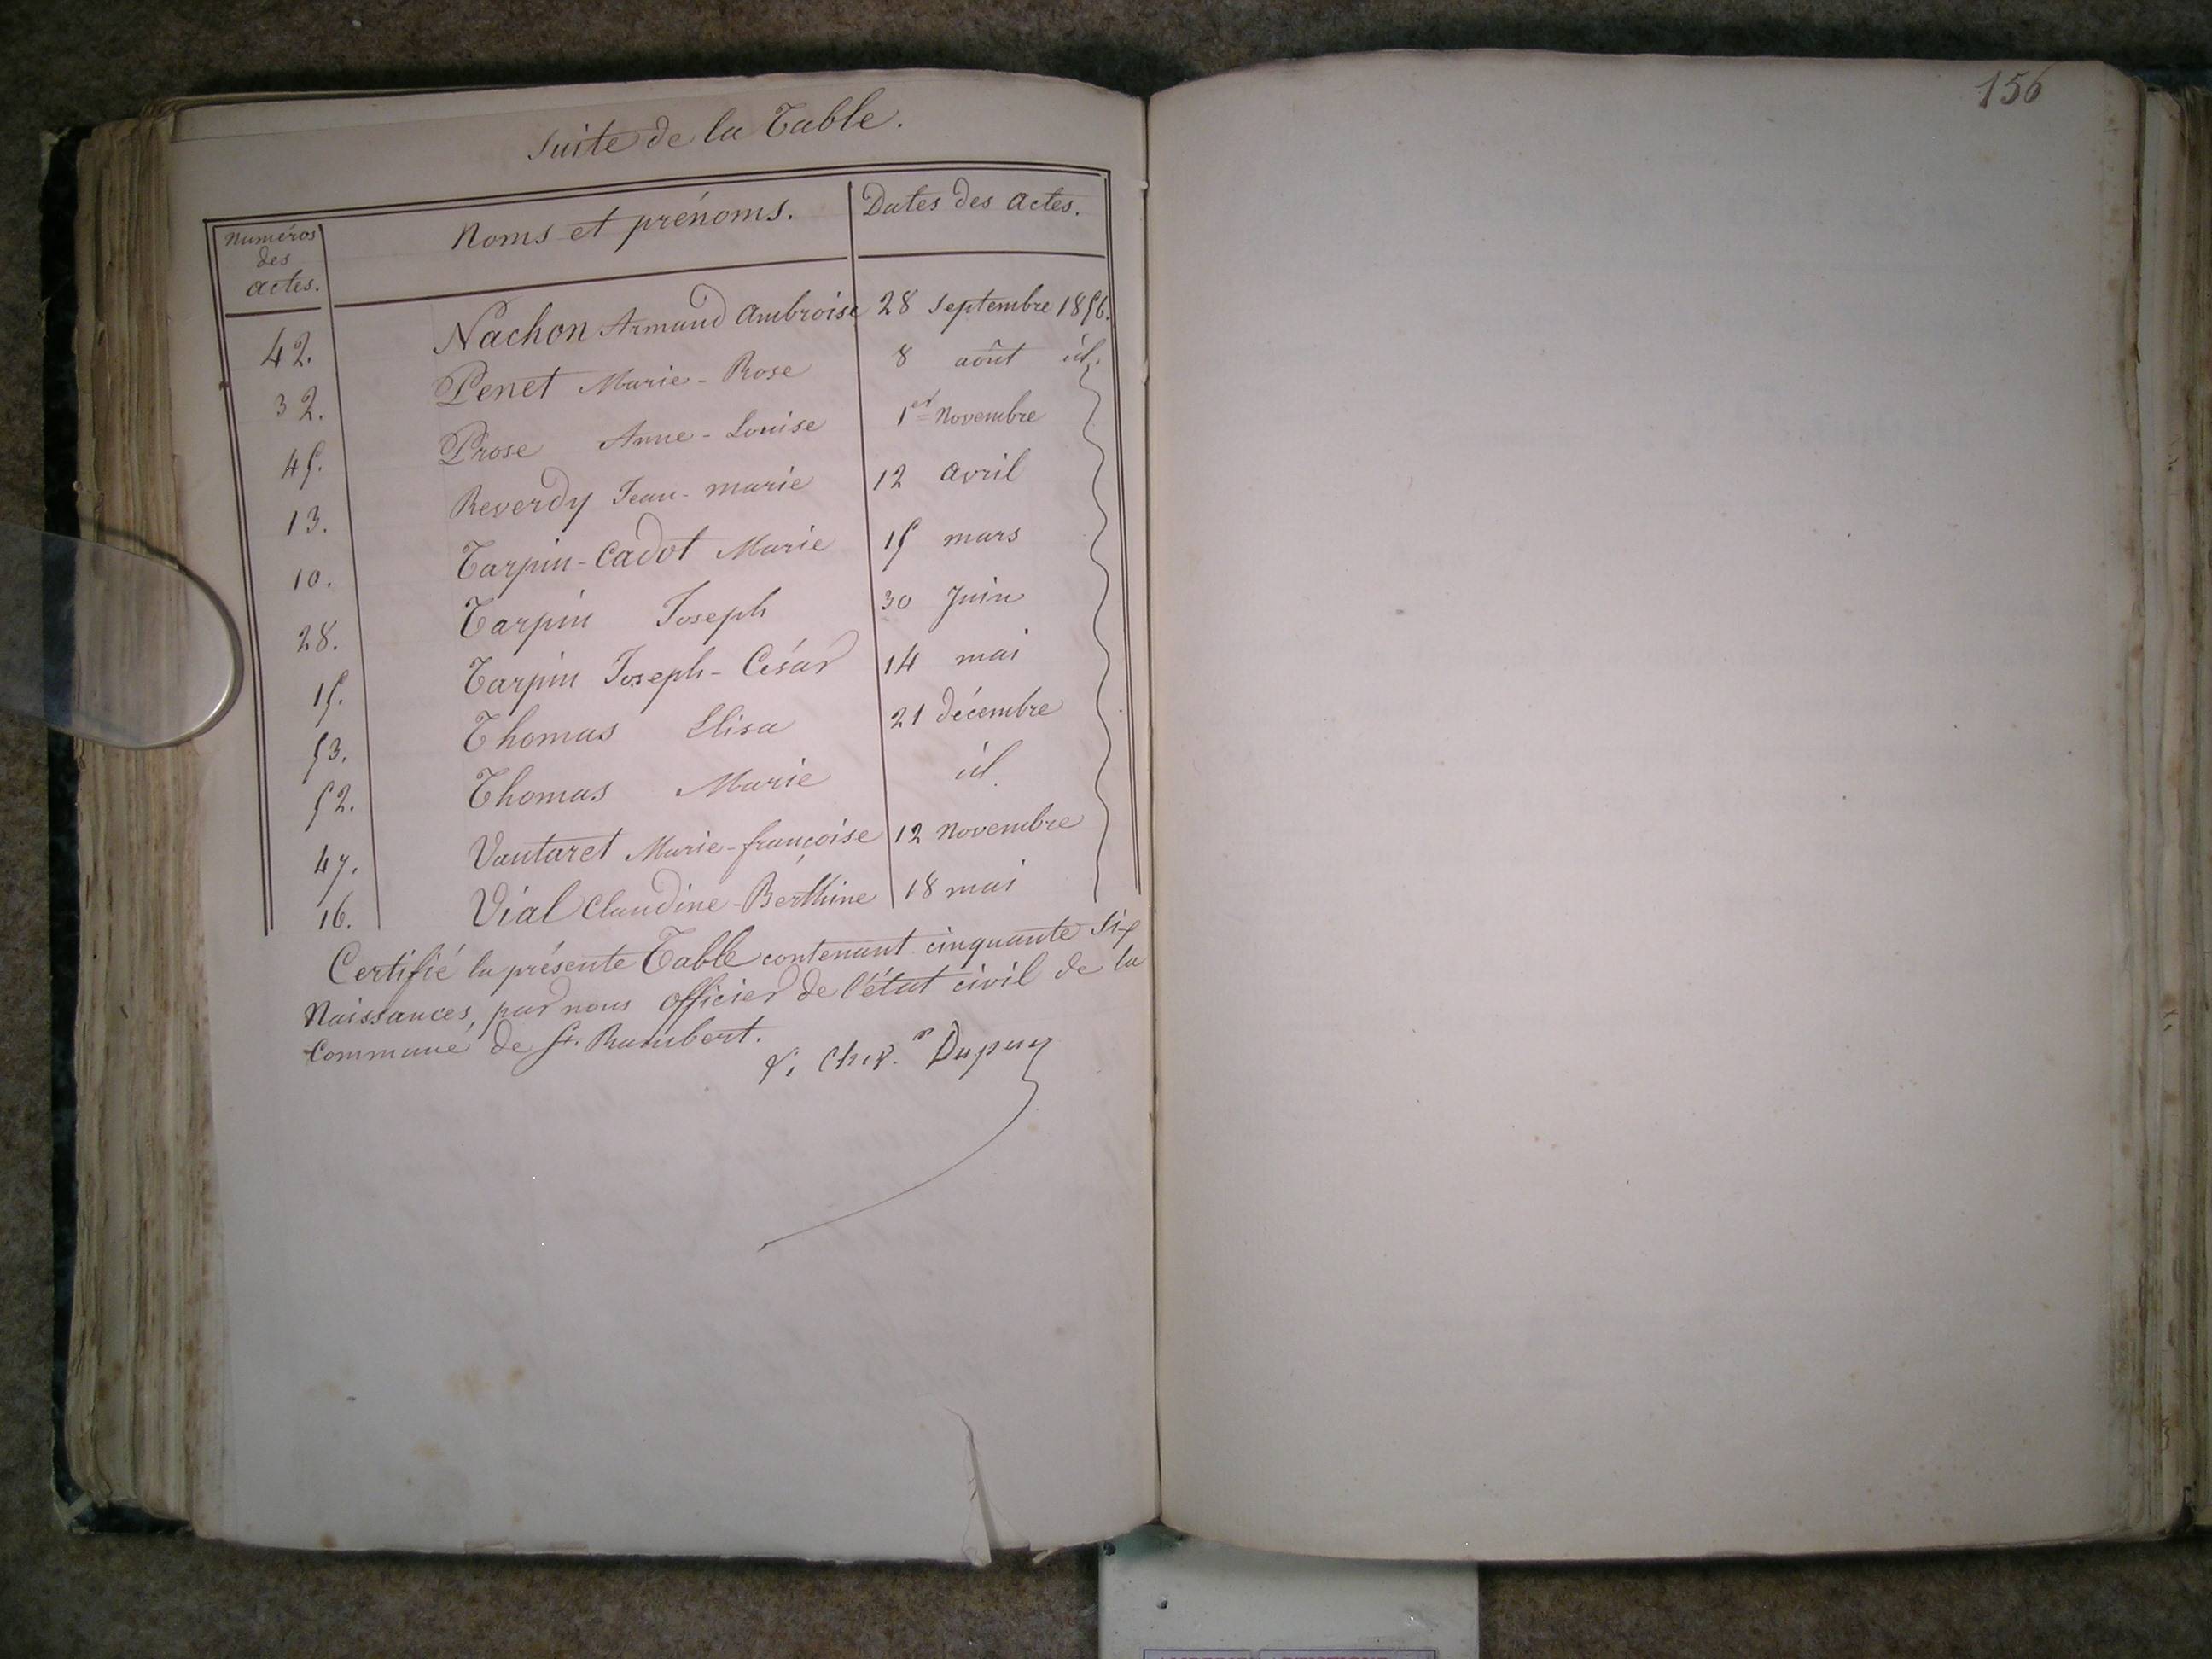 156
Suite de la Table.
Numéros des actes. Noms et prénoms. Dates des actes.
42. Nachon Armand Ambroise 28 Septembre 1856.
32. Penet Marie-Rose 8 août id.
45. Prose Anne-Louise 1er Novembre
13. Reverdy Jean-marie 12 avril
10. Tarpin-Cadot Marie 15 mars
28. Tarpin Joseph 30 Juin
15. Tarpin Joseph-César 14 mai
53. Thomas Elisa 21 décembre
52. Thomas Marie id.
47. Vautaret Marie-françoise 12 Novembre
16. Vial Claudine-Berthine 18 mai
Certifié la présente Table contenant cinquante six
Naissances, par nous officier de l'état civil de la
Commune de St. Rambert.
Dupuy